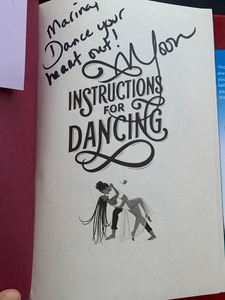 Marina,
Dance your
heart out!
INSTRUCTIONS
FOR
DANCING